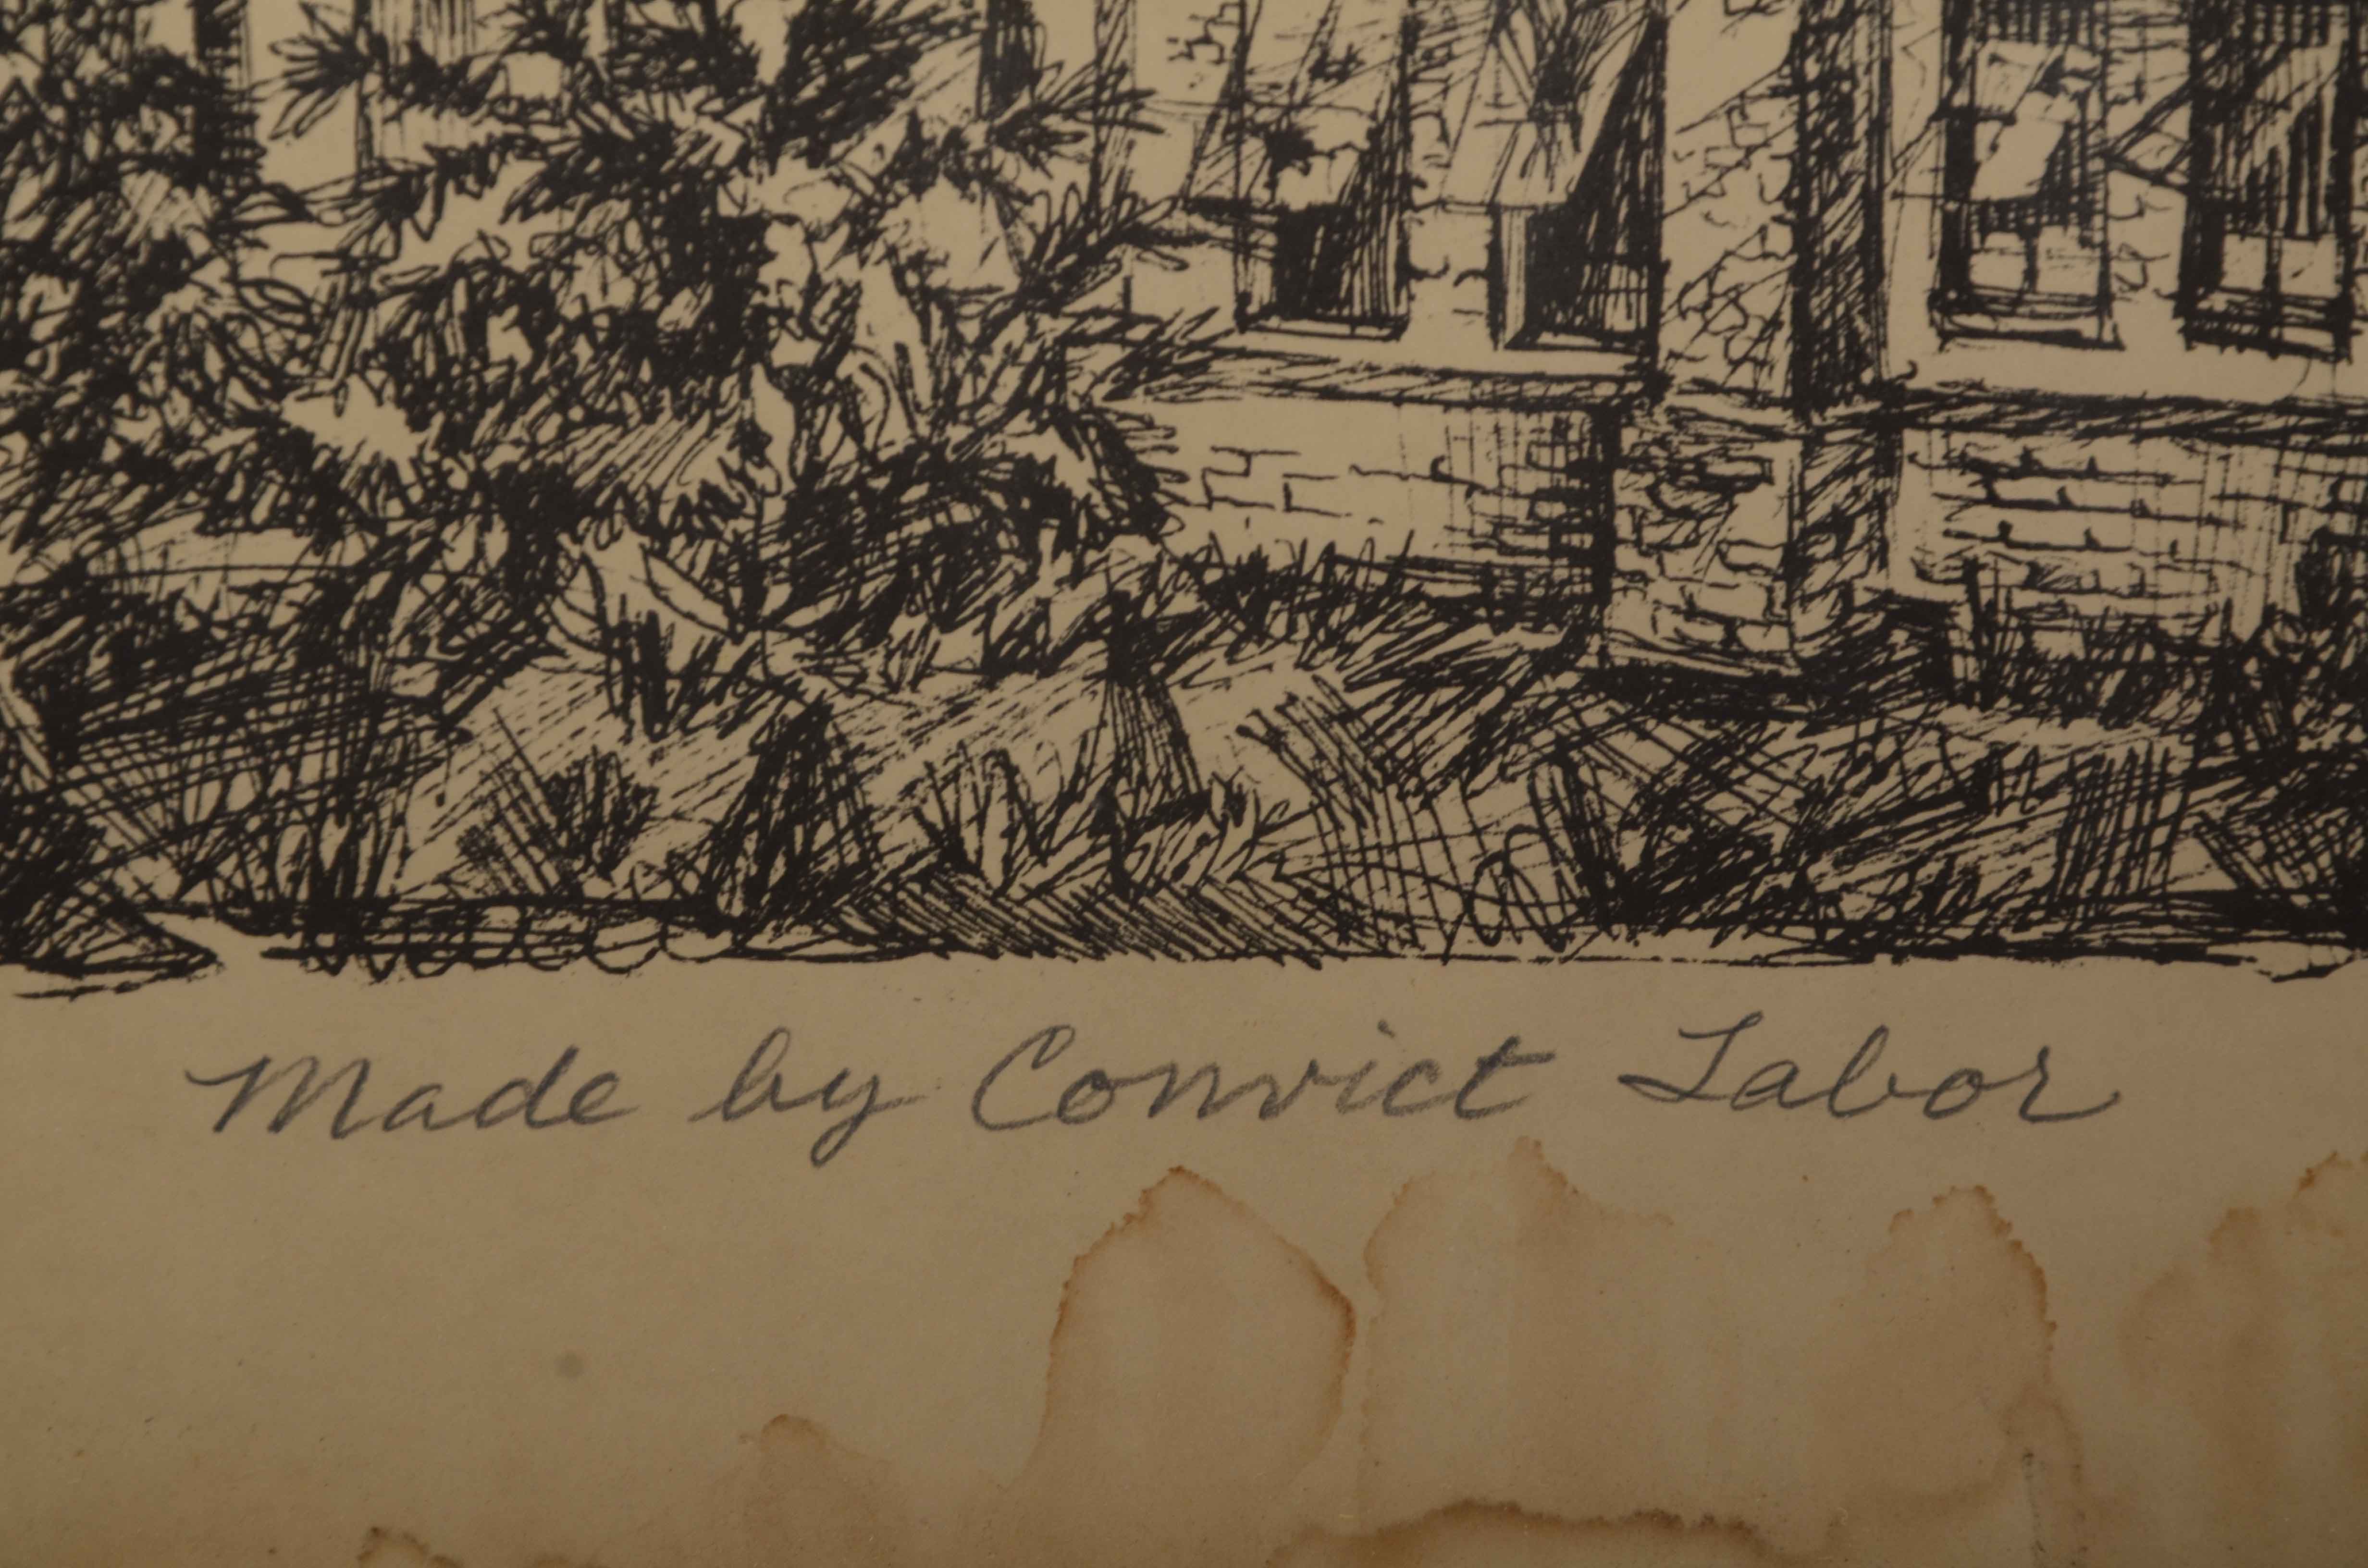 Made by Convict Labor